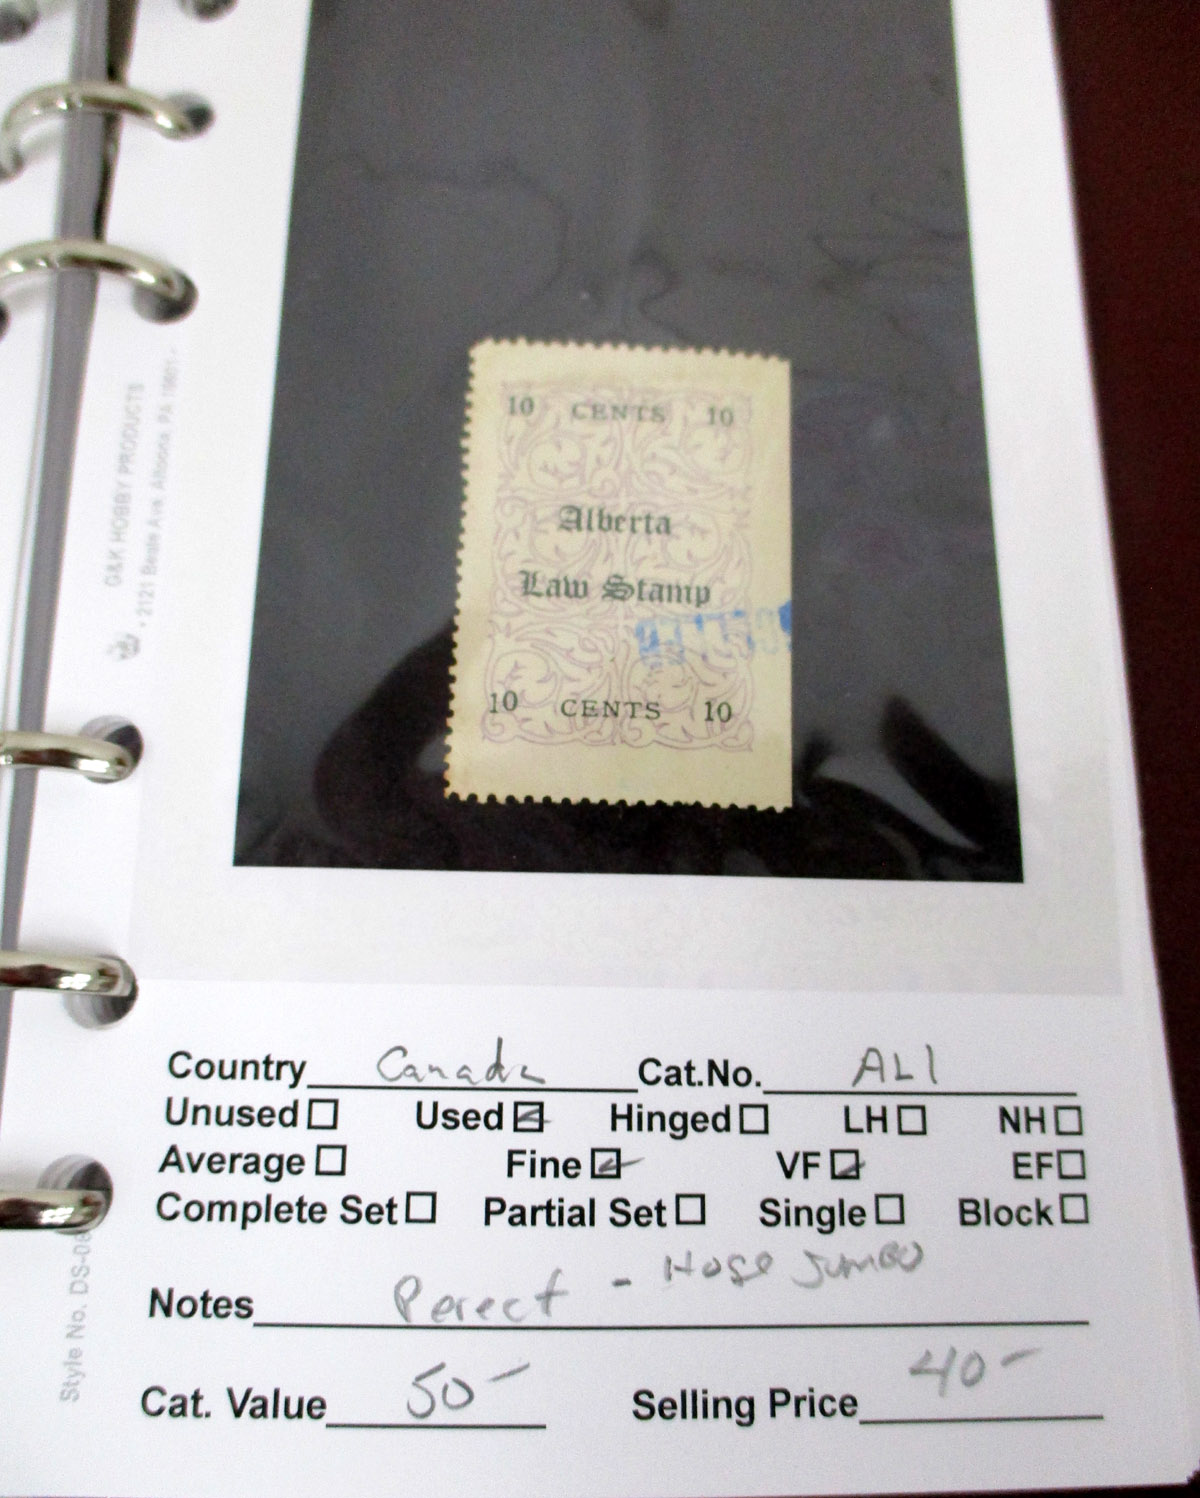 10 CENTS 10
Alberta
Law Stamp
10 CENTS 10
G&K HOBBY PRODUCTS
• 2121 Beale Ave. Altoona, PA 16601 •
Country Canada Cat.No. AL1
Unused Used Hinged LH NH
Average Fine VF EF
Complete Set Partial Set Single Block
Notes Perect - Hoge Jumbo
Cat. Value 50- Selling Price 40-
Style No. DS-06